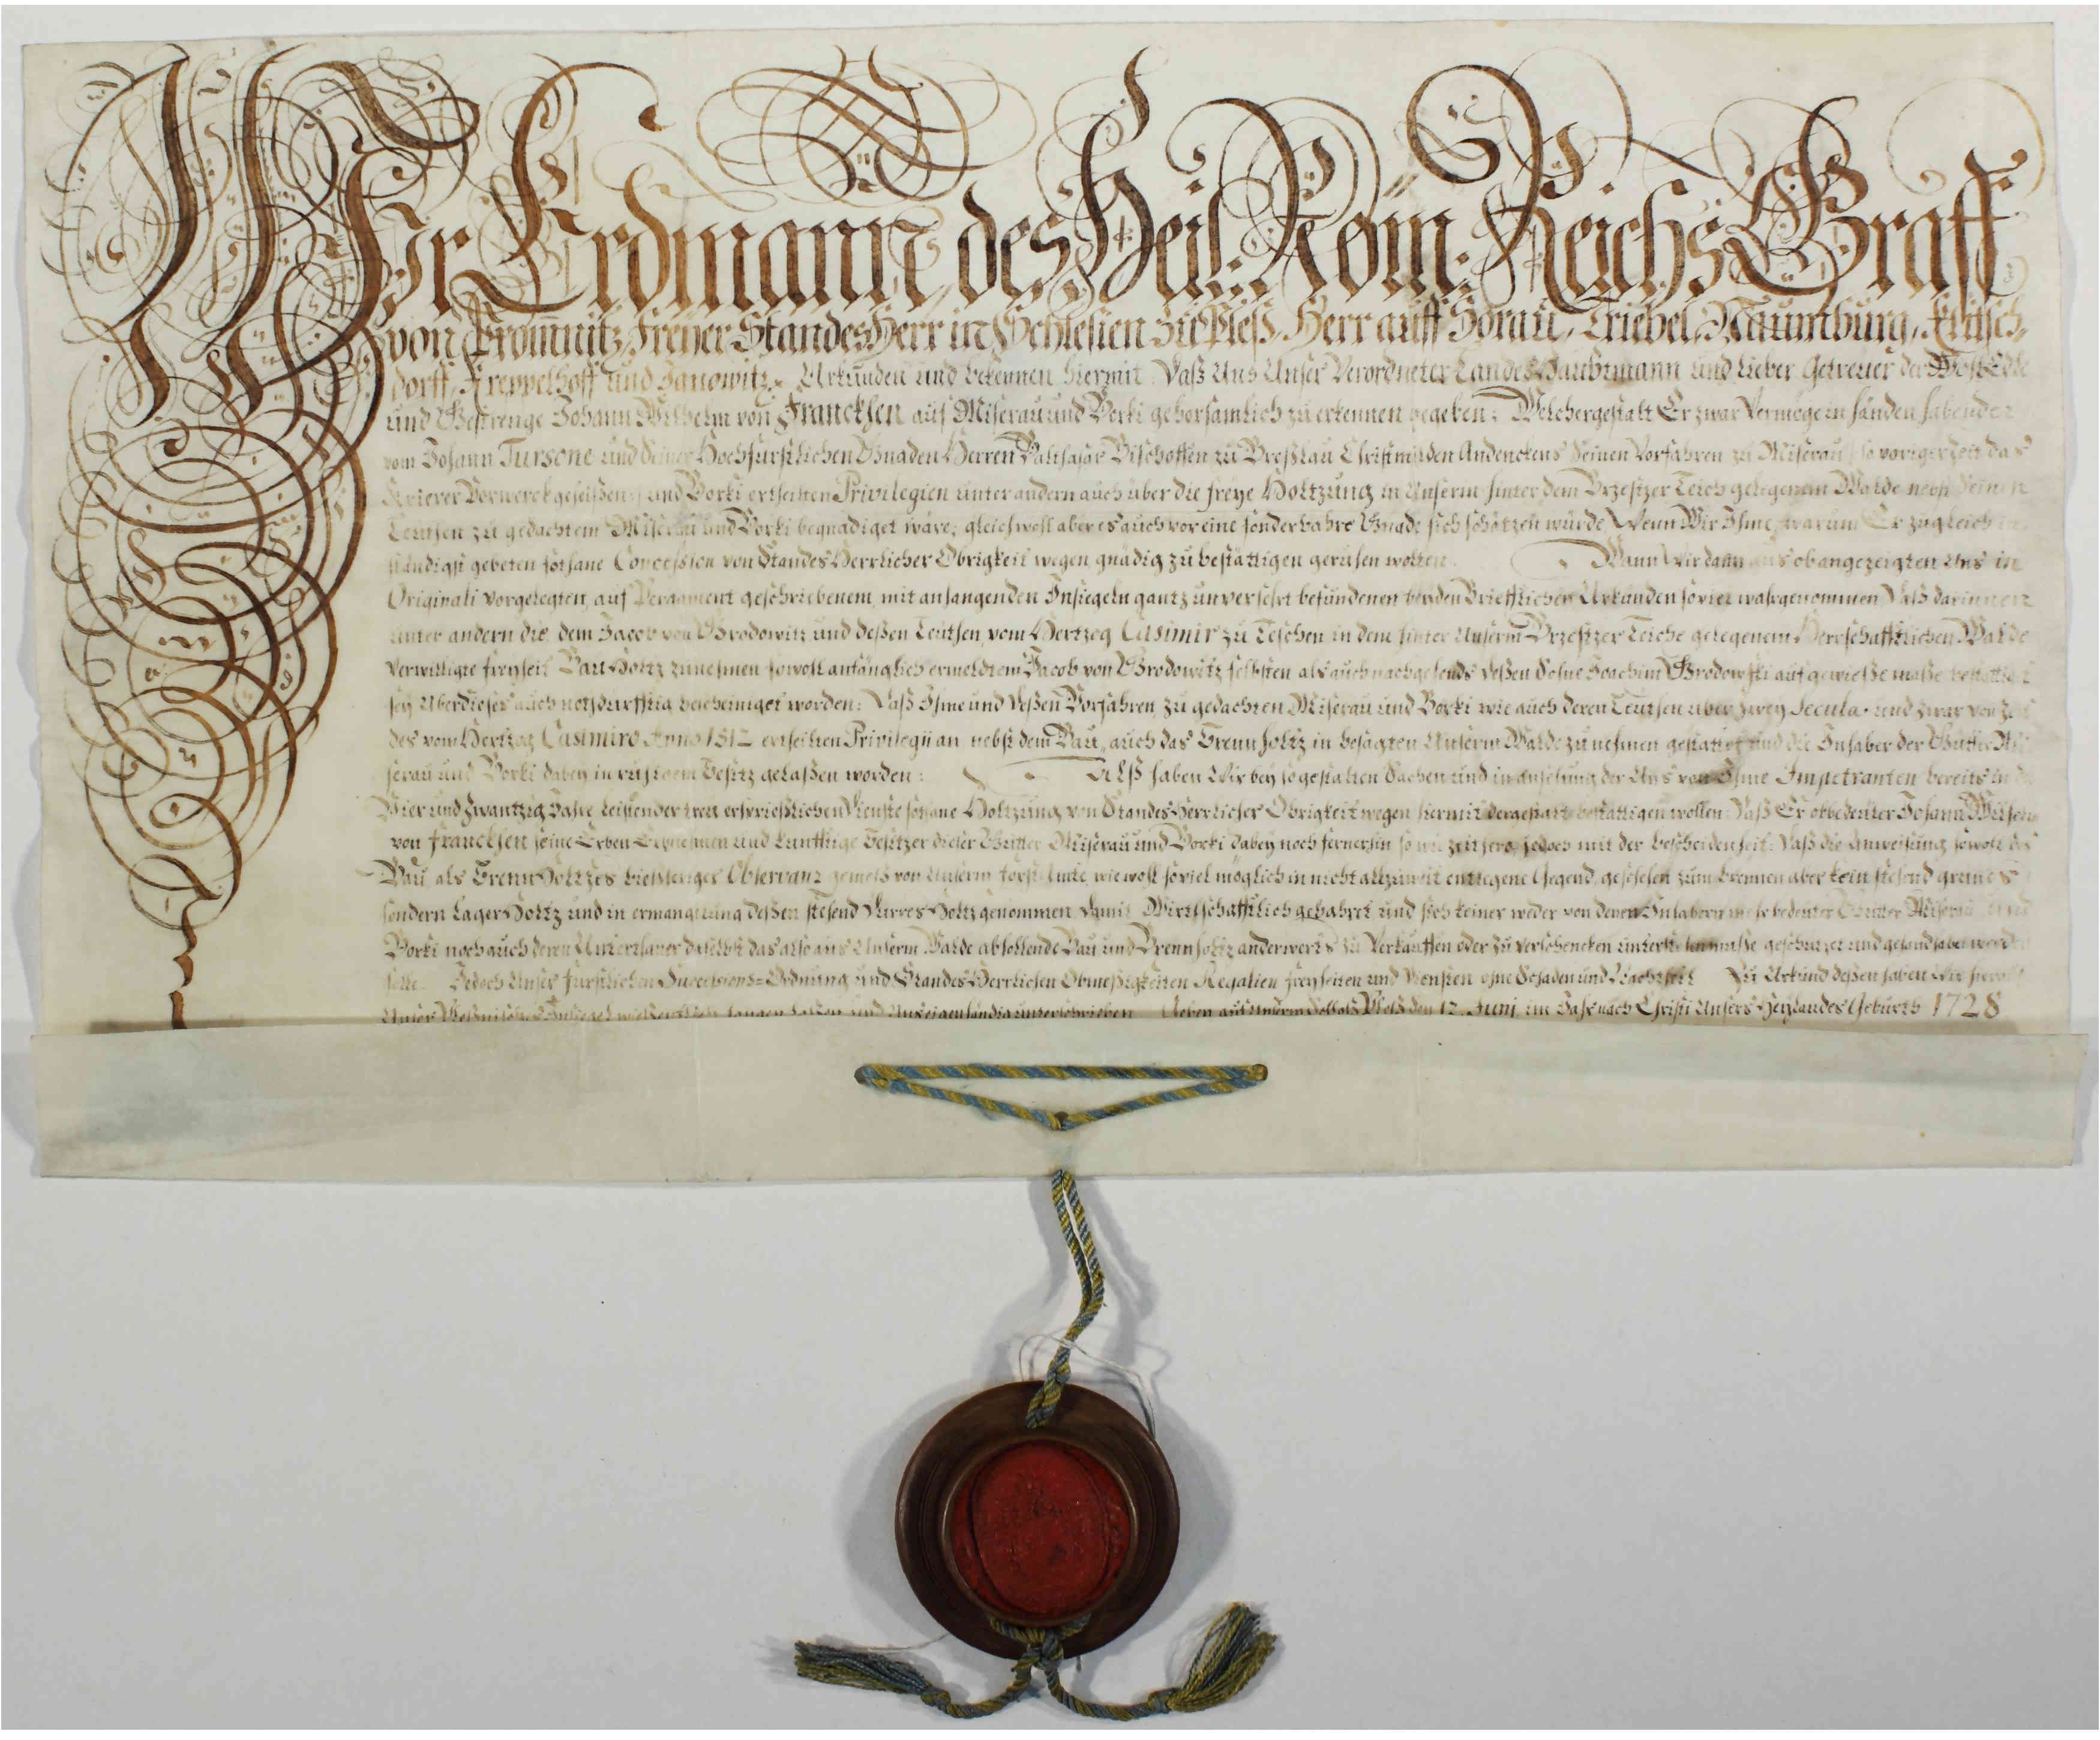 Wir Erdmann des Heil: Röm: Reichs Graff
von Promnitz, Freyer Standes Herr in Schlesien zu Pleß, Herr auff Sorau, Triebel, Naumburg, Klitsch-
dorff, Kreppelhoff und Janowitz, Urkunden und bekennen hiermit, Daß Uns Unser Verordneter Landes Haubtmann und Lieber Getreuer der
und Gestrenge Johann Wilhelm von Francklen auf Miserau und Borki gehorsamlich zu erkennen gegeben; Welchergestalt Er zwar Vermöge in händen habender
vom Johann Tursone und Seiner Hochfürstlichen Gnaden Herren Balthasar Bischoffen zu Breßlau Christmilden Andenckens Seinen Vorfahren zu Miserau so voriger Zeit das
Vorwerck geheißen und Borki ertheilten Privilegien unter andern auch über die freye Holtzung in Unserm hinter dem Brzeszer Teich gelegenem Walde nebst Seinen
Leuthen zu gedachtem Miserau und Borki begnadiget wäre; gleichwohl aber es auch vor eine sonderbahre Gnade sich schätzen würde Wenn Wir Ihme, warum Er zugleich
ständigst gebeten sothane Concession von Standes Herrlicher Obrigkeit wegen gnädig zu bestättigen geruhen wolten. Wann Wir dann aus obangezeigten Uns in
Originali Vorgelegten, auf Pergament geschriebenem, mit anhangenden Insiegeln gantz unversehrt befundenen beyden Brieffliche Urkunden soviel wahrgenommen Daß darinnen
unter andern die, dem Jacob von Brodowitz und deßen Leuthen vom Hertzog Casimir zu Teschen in dem hinter Unserm Brzeszer Teiche gelegenem Herrschafftlichen Walde
Verwilligte freyheit Bau Holtz zu nehmen sowohl anfänglich ermeldtem Jacob von Brodowitz selbsten als auch nachgehends deßen Sohne Joachim Brodowski auf gewieße maße bestättiget
sey Uberdieses auch nothdürfftig bescheiniget worden: Daß Ihme und deßen Vorfahren zu gedachten Miserau und Borki wie auch deren Leuthen über zwey Secula, und zwar von Zeit
des vom Hertzog Casimiro Anno 1512 ertheilten Privilegii an nebst dem Bau, auch das Brennholtz in besagten Unserm Walde zu nehmen gestattet und die Inhaber der Gütter Mi-
serau und Borki dabey in ruhigem Besitz gelaßen worden: Alß haben Wir bey so gestalten Sachen und in ansehung der Uns von Ihme Impetranten bereits in die
Vier und Zwantzig Jahre Leistender treu ersprießlichen Dienste sothane Holtzung von Standes Herrlicher Obrigkeit wegen hiermit dergestalt bestättigen wollen: Daß Er obbedeuter Johann Wilhelm
von Francklen seine Erben Erbnehmen und künfftige Besitzer dieser Gütter Miserau und Borki dabey noch fernerhin so wie zeithero, jedoch mit der bescheidenheit: Daß die Anweisung sowohl des
Bau als Brenn Holtzes Observanz gemeß von Unserm Forst Amte, wiewohl soviel möglich in nicht allzuweit entlegene Gegend, geschehen zum brennen aber kein stehend grünes
sondern Lager Holtz und in ermangelung deßen stehend Dürres Holtz genommen damit Wirthschafftlich gebahret und sich keiner weder von denen Inhabern mehr bedeuter Gütter Miserau und
Borki noch auch deren Unterthaner daselbst das also aus Unserm Walde abhollende Bau und Brennholtz anderwerts zu Verkauffen oder zu verschencken geschützet und gehandhabet werden
solle. Jedoch Unser Fürstlichen Successions-Ordnung und Standes Herrlichen Regalien Freyheiten und Diensten ohne Schaden und Nachtheil Zu Urkund deßen haben Wir hier
Unser Insiegel wießentlich hangen laßen und Uns eigenhändig unterschrieben. Geben auf Unserm Schloß Pleß den 12. Juni, im Jahr nach Christi Unsers Heylandes Geburth 1728